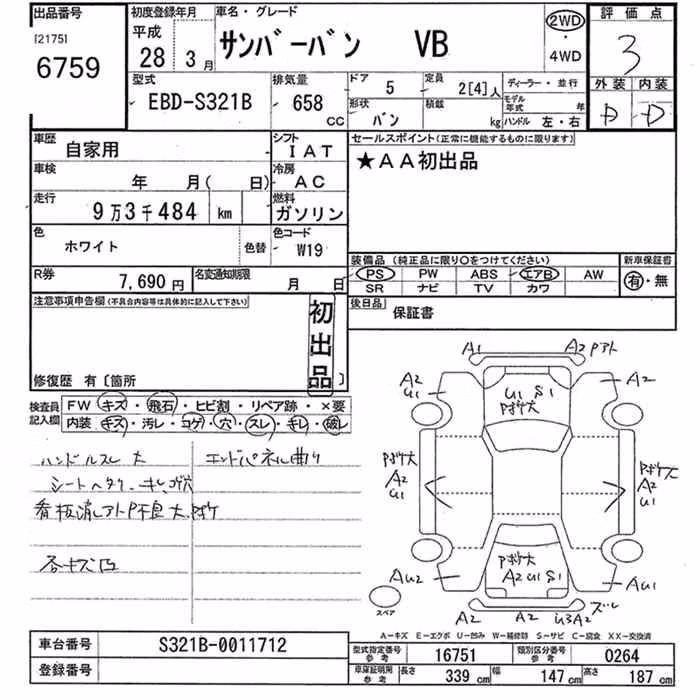 出品番号
[2175]
6759
初度登録年月
平成
28年3月
車名・グレード
サンバーバン VB
2WD
・
4WD
評価点
3
外装 内装
D D
型式
EBD-S321B
排気量
658 CC
ドア
5
定員
2[4]人
ディーラー・並行
形状
バン
積載
kg
モデル年式 年
ハンドル 左・右
車歴
自家用
シフト
IAT
車検
年 月( 日)
冷房
AC
走行
9万3千484 km
燃料
ガソリン
色
ホワイト
色替
色コード
W19
R券
7,690円
名変通知期限
月 日
セールスポイント(正常に機能するものに限ります)
★AA初出品
装備品(純正品に限り○をつけてください)
PS PW ABS エアB AW
SR ナビ TV カワ
新車保証書
有・無
後日品
保証書
注意事項申告欄(不具合内容等は具体的に記入して下さい)
初出品
修復歴 有〔箇所 〕
検査員記入欄
FW キズ・飛石・ヒビ割・リペア跡・×要
内装 キズ・汚レ・コゲ・穴・スレ・キレ・破レ
ハンドルスレ大
エンドパネル曲り
シートヘタリ・キレ、コゲ穴
各キズ凹
A1
A2
A2
U1
U1 S1
A2
A2
U1
A2
U1
AU2
A2 U1 S1
AU1
A2
A2
U3A2
ズレ
スペア
A-キズ E-エクボ U-凹み W-補修跡 S-サビ C-腐食 XX-交換済
車台番号
S321B-0011712
登録番号
型式指定番号
参考
16751
類別区分番号
参考
0264
車庫証明用
参考
長さ
339 cm
幅
147 cm
高さ
187 cm